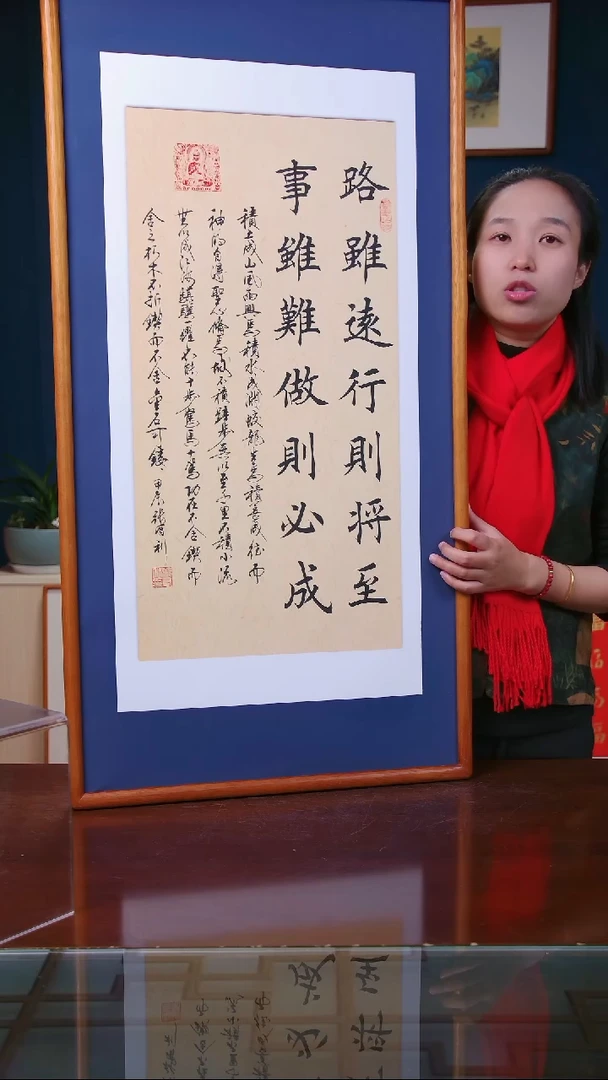 路雖遠行則将至
事雖難做則必成
積土成山風雨興焉積水成淵蛟龍生焉積善成德而
神明自得聖心備焉故不積跬步無以至千里不積小流
無以成江海騏驥一躍不能十步駑馬十駕功在不舍鍥而
舍之朽木不折鍥而不舍金石可鏤甲辰張利